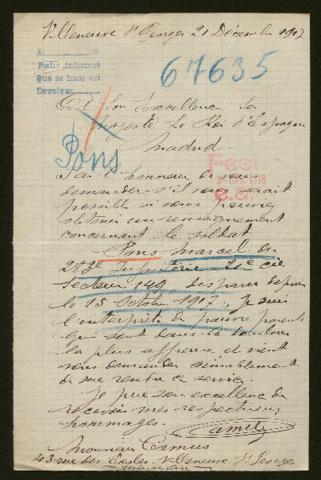 Villeneuve St Georges 21 Décembre 1917
A
Pedir Informes
Que se hace est
Devolver
67635
A Son Excellence Sa
Majesté Le Roi d'Espagne
Madrid
Pons
J'ai l'honneur de vous
demander s'il vous serait
possible si vous pouviez
obtenir un renseignement
concernant le soldat
Pons Marcel du
283e Infanterie 21e cie
Secteur 149 disparu depuis
le 15 Octobre 1917. Je suis
l'interprète de pauvre parents
qui sont dans la douleur
la plus affreuse et vient
vous demander
de me rendre ce service.
Je prie son excellence de
recevoir mes respectueux
hommages.
Camus
Monsieur Camus
43 rue des Ecoles Villeneuve St Georges